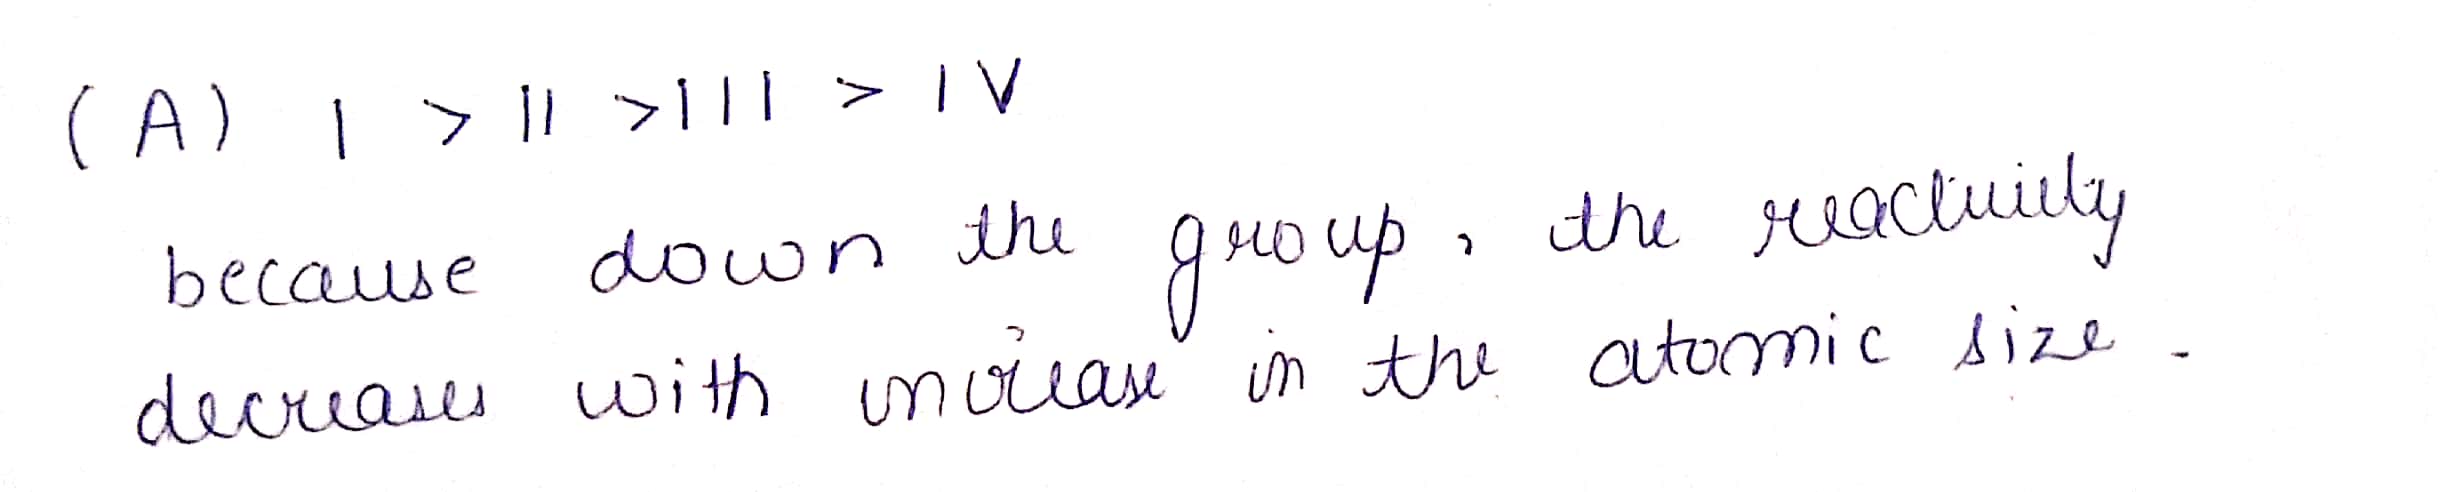 (A) I > II > III > IV
because down the group, the reactivity
decreases with increase in the atomic size.